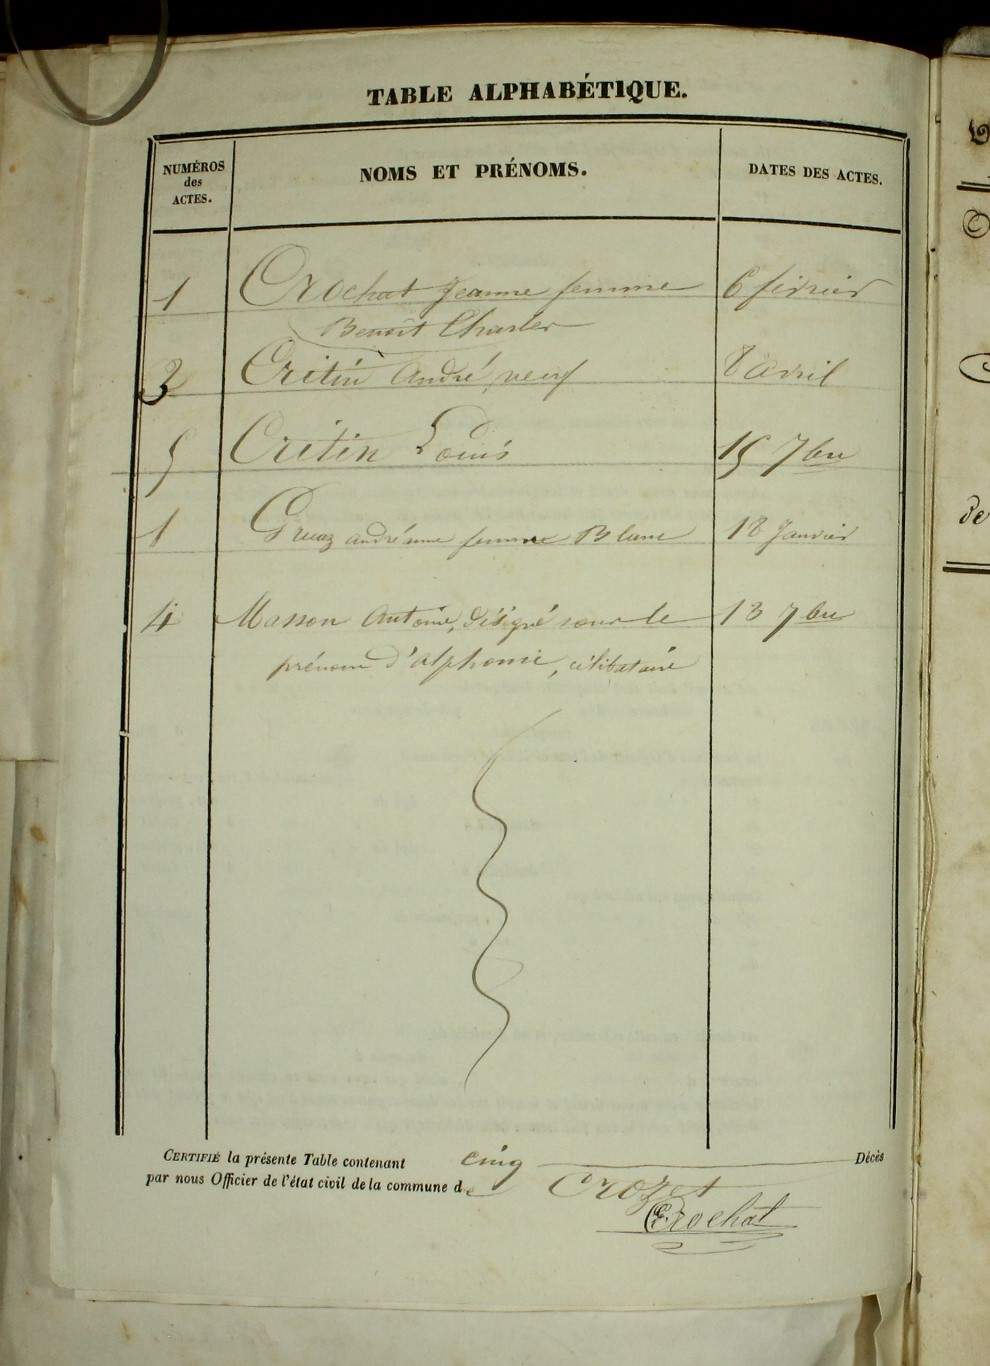 TABLE ALPHABÉTIQUE.
NUMÉROS
des
ACTES.
NOMS ET PRÉNOMS.
DATES DES ACTES.
1 Crochat Jeanne femme 6 février
Benoît Charles
3 Critin André, veuf 8 avril
5 Critin Louis 15 7bre
1 Gruaz andréanne femme Blanc 18 Janvier
4 Masson Antoine, désigné sous le 13 7bre
prénom d'alphonse, célibataire
CERTIFIÉ la présente Table contenant cinq Décès
par nous Officier de l'état civil de la commune de Crozet
Crochat